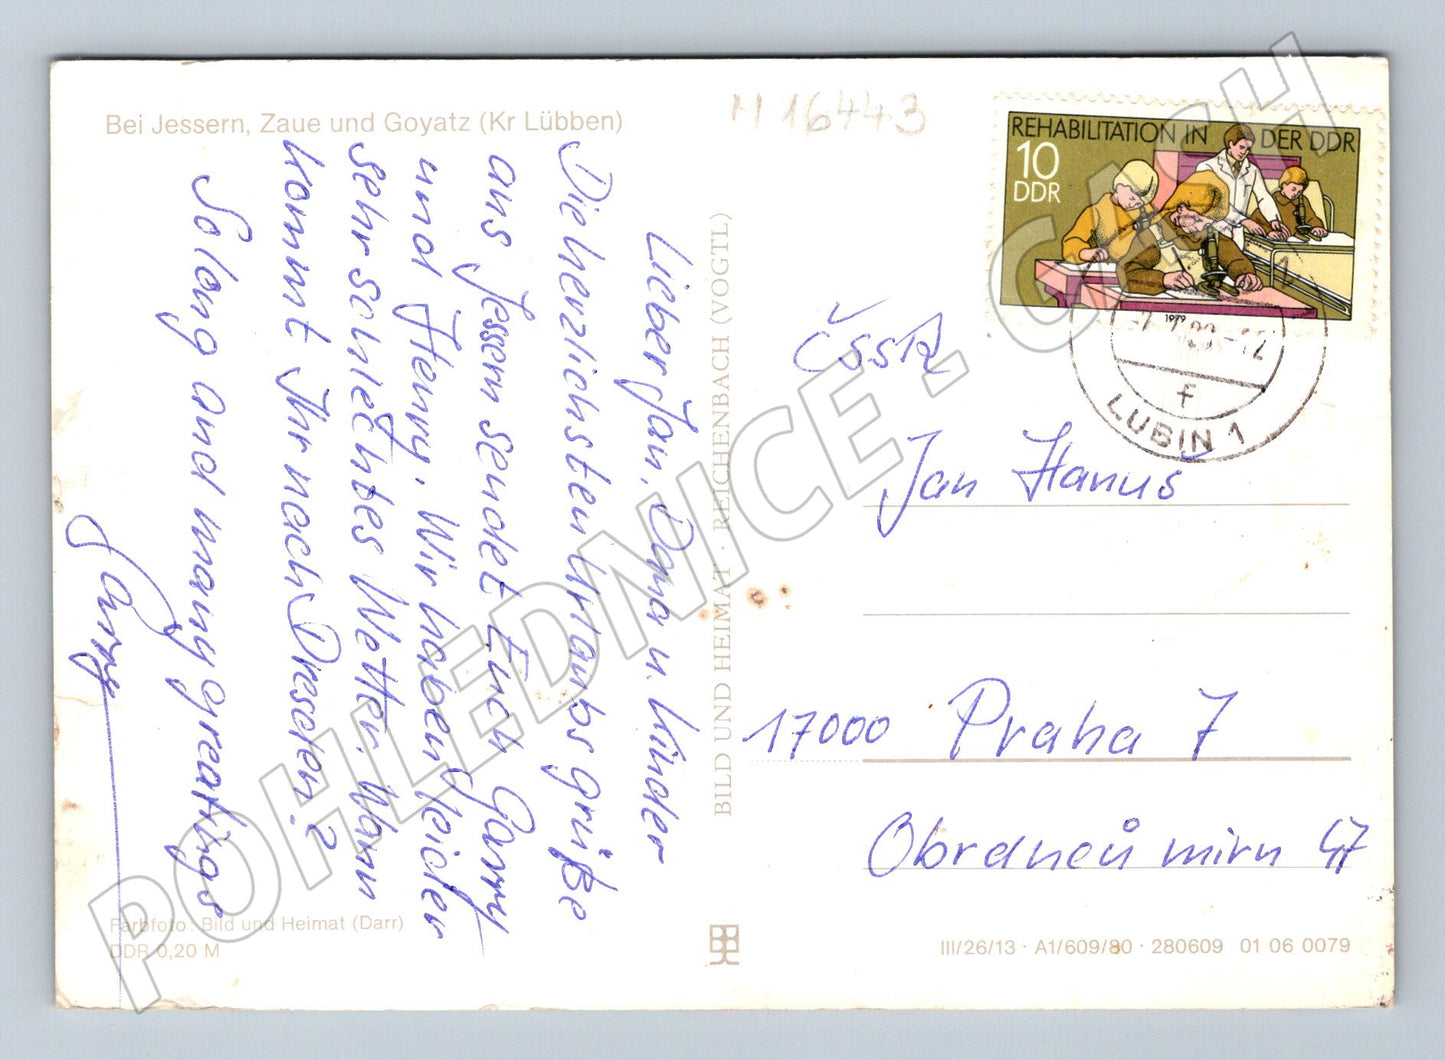 Bei Jessern, Zaue und Goyatz (Kr Lübben)
M 16443
REHABILITATION IN DER DDR
10
DDR
1979
LUBIN 1
f
Lieber Jan, Dana u. Kinder
Die herzlichsten Urlaubsgrüße
aus Jessern sendet Euch Garry
und Henry. Wir haben leider
sehr schlechtes Wetter. Wann
kommt Ihr nach Dresden?
So long and many greatings
Garry
ČSSR
Jan Hanuš
17000 Praha 7
Obrdneců mirn 47
BILD UND HEIMAT · REICHENBACH (VOGTL)
Farbfoto: Bild und Heimat (Darr)
DDR 0,20 M
III/26/13 · A1/609/80 · 280609 01 06 0079
POHLEDNICE - CASH